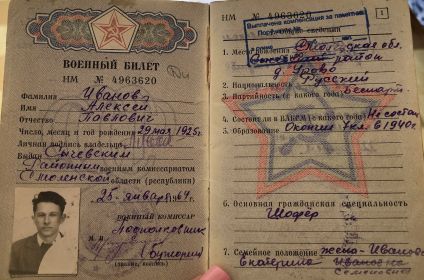 ВОЕННЫЙ БИЛЕТ
НМ № 4963620
Фамилия Иванов
Имя Алексей
Отчество Павлович
Число, месяц и год рождения 29 мая 1925г.
Личная подпись владельца
Выдан Сычевским
Районным военным комиссариатом
Смоленской области (республики)
25 января 64 г.
ВОЕННЫЙ КОМИССАР
Подполковник
М. П.
(звание, подпись)
НМ № 4963620
1
Выплачена компенсация за
1. Место рождения обл.
район
д.
2. Национальность Русский
3. Партийность (с какого года) Беспарт.
4. Состоит ли в ВЛКСМ (с какого года) Не состоит
5. Образование Окончил 7 кл. в 1940г.
6. Основная гражданская специальность
Шофер
7. Семейное положение жена - Иванова
Екатерина Ивановна